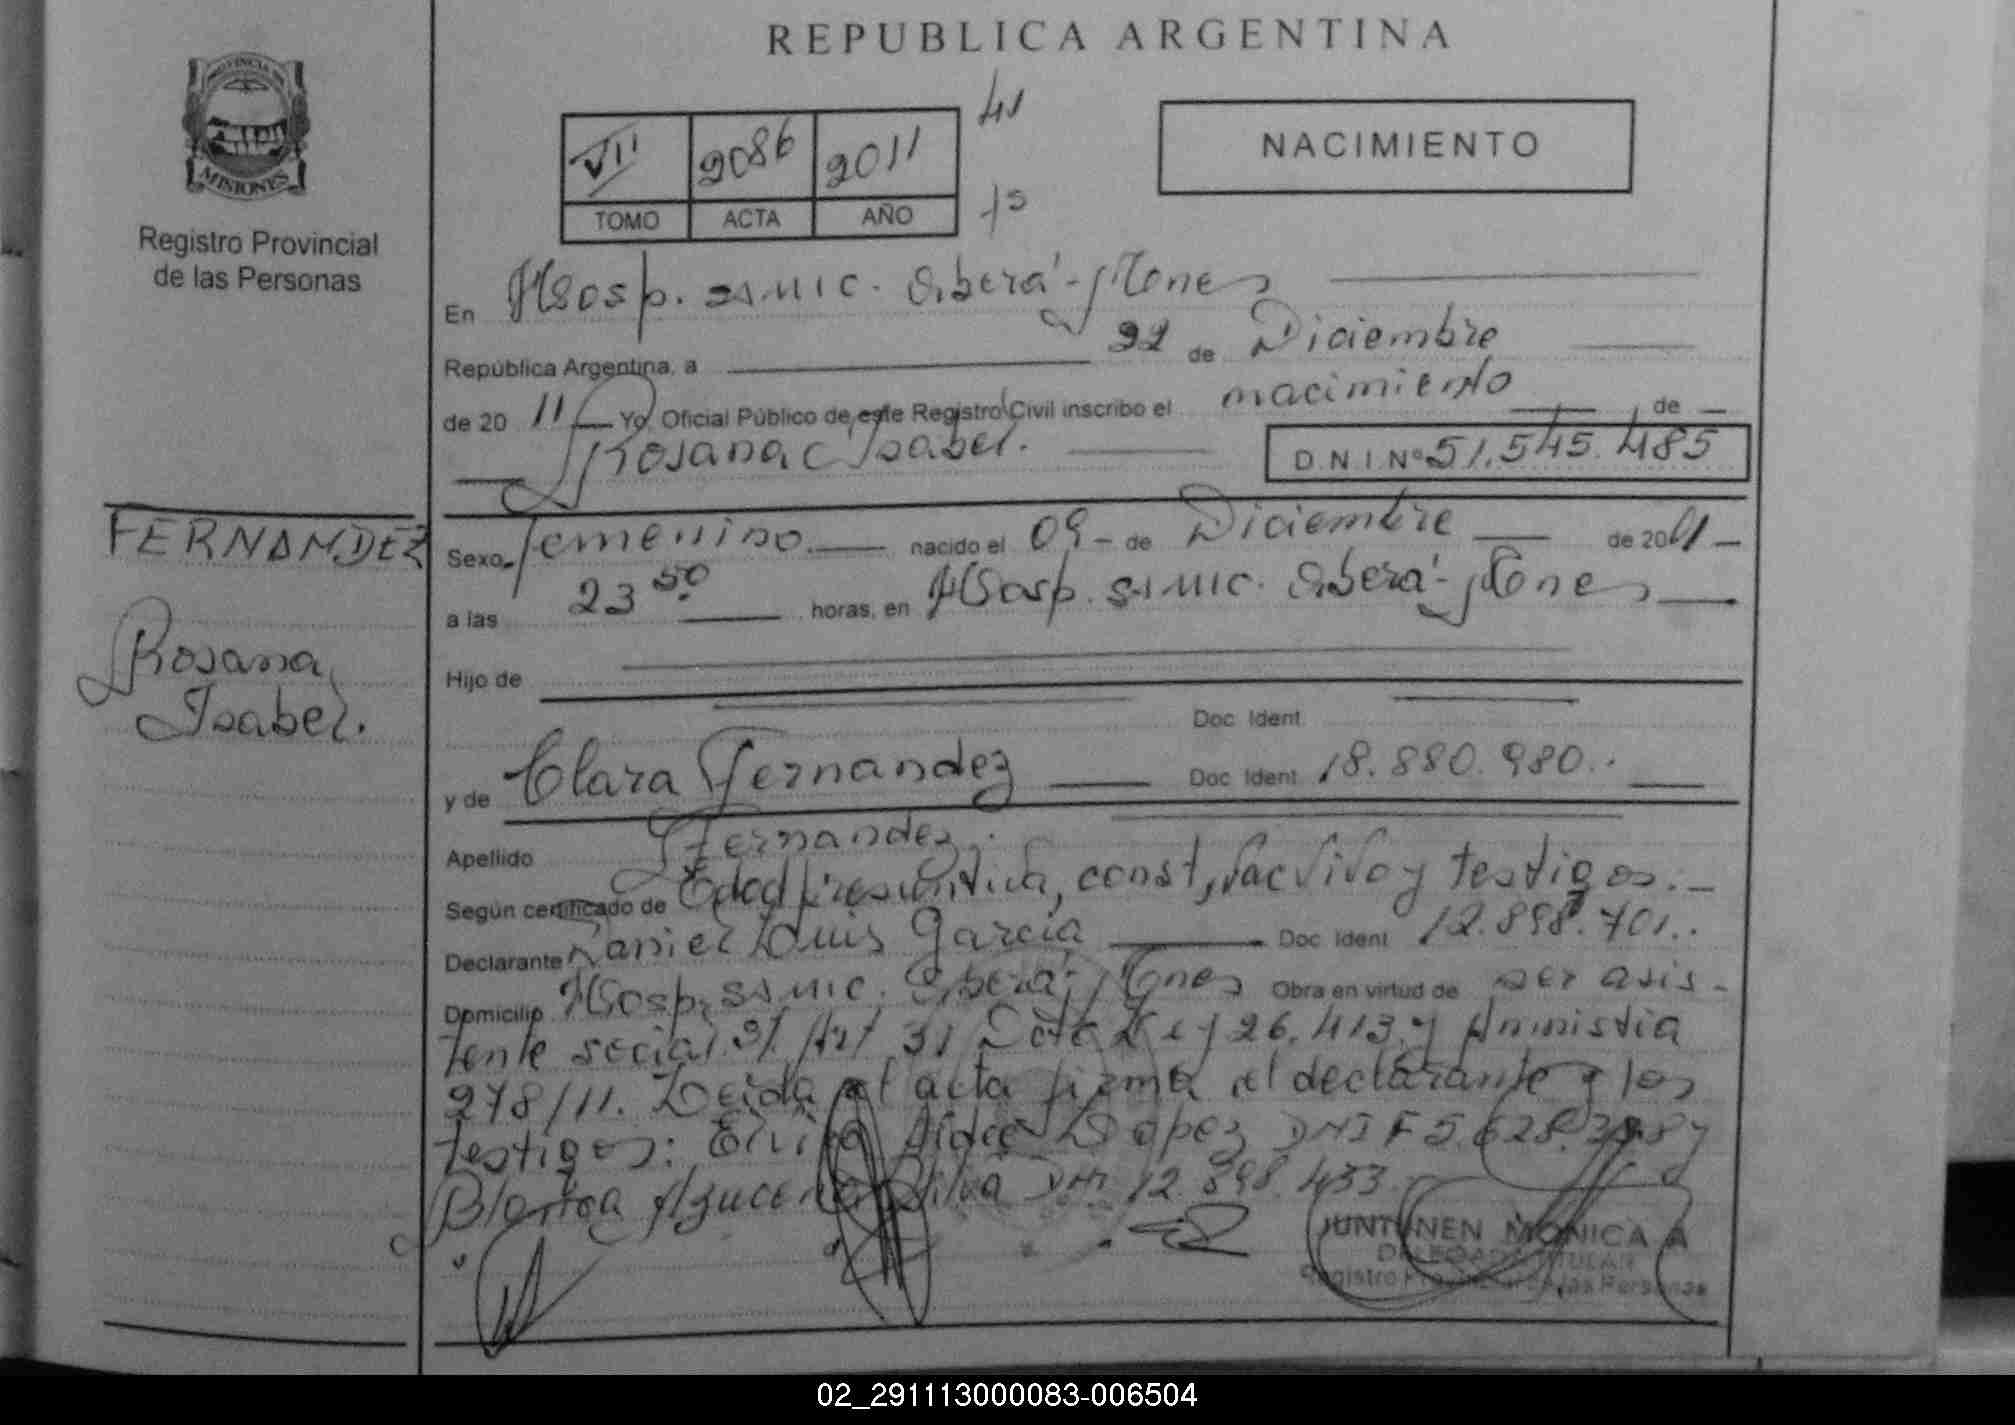 REPUBLICA ARGENTINA
PROVINCIA DE
MISIONES
Registro Provincial
de las Personas
VII 2086 2011
TOMO ACTA AÑO
NACIMIENTO
En Hosp. SAMIC. Oberá - Mones
República Argentina, a 22 de Diciembre
de 2011 Yo Oficial Público de este Registro Civil inscribo el nacimiento de
Rosana Isabel. D.N.I.Nº 51.545.485
FERNANDEZ
Rosana
Isabel.
Sexo femenino nacido el 09 - de Diciembre de 2011
a las 23 50 horas, en Hosp. SAMIC. Oberá - Mones
Hijo de
Doc. Ident.
y de Clara Fernandez Doc. Ident. 18.880.980..
Apellido Fernandez.
Según certificado de Edad presuntiva, const, nac vivo y testigos. -
Declarante Daniel Luis García Doc. Ident. 12.898.701..
Domicilio Hosp. SAMIC. Oberá - Mones Obra en virtud de ser asis-
tente social. Art 31 Ley 26.413 y Amnistia
278/11. Leida el acta firma el declarante y los
testigos: Lopez DNI F 5.628. y
Blanca Azucena Silva DNI 12.898.433.
JUNTUNEN MONICA A
DELEGADA TITULAR
Registro Provincial de las Personas
02_291113000083-006504